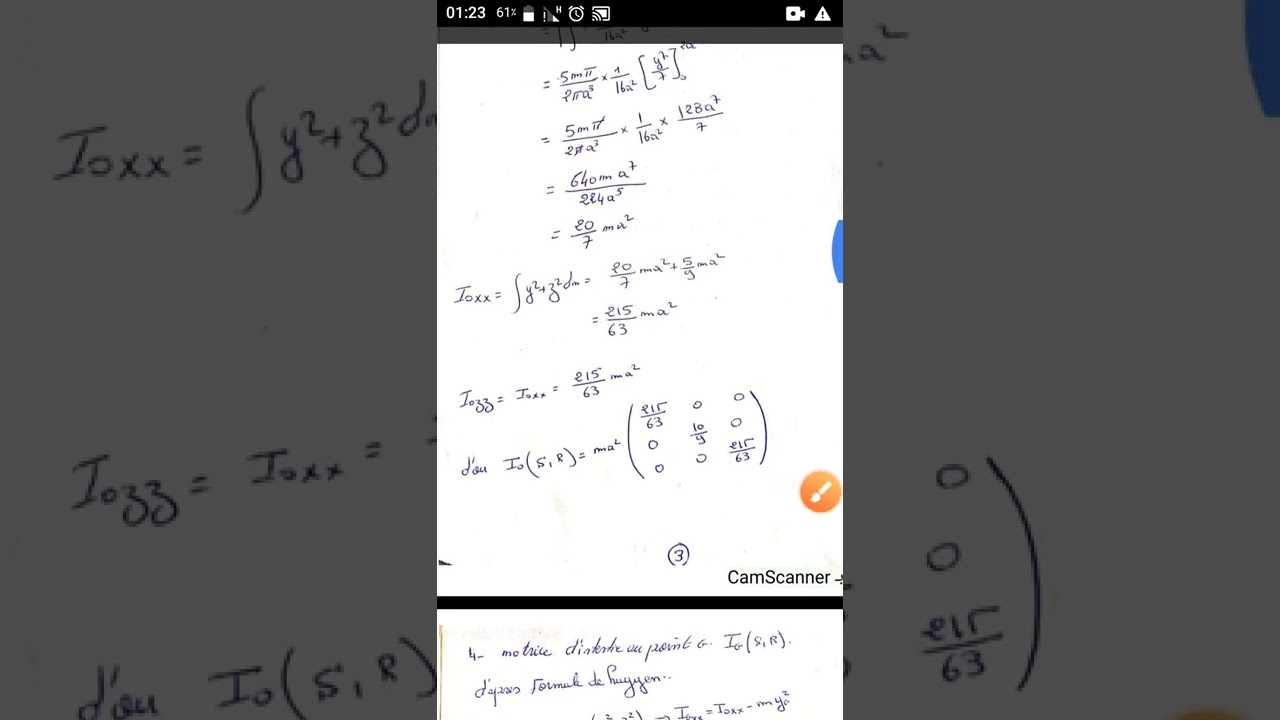 01:23 61%
= 5mπ/2πa³ × 1/16a² [y⁷/7]₀²ᵃ
= 5mπ/2πa³ × 1/16a² × 128a⁷/7
= 640m a⁷/224a⁵
= 20/7 ma²
Ioxx = ∫y²+z²dm = 20/7 ma² + 5/9 ma²
= 215/63 ma²
Iozz = Ioxx = 215/63 ma²
d'ou Io(S,R) = ma² (215/63 0 0
0 10/9 0
0 0 215/63)
3
CamScanner
4- matrice d'inertie au point G. IG(S,R).
d'apres formule de huygen..
⇒ IGxx = Ioxx - m y²